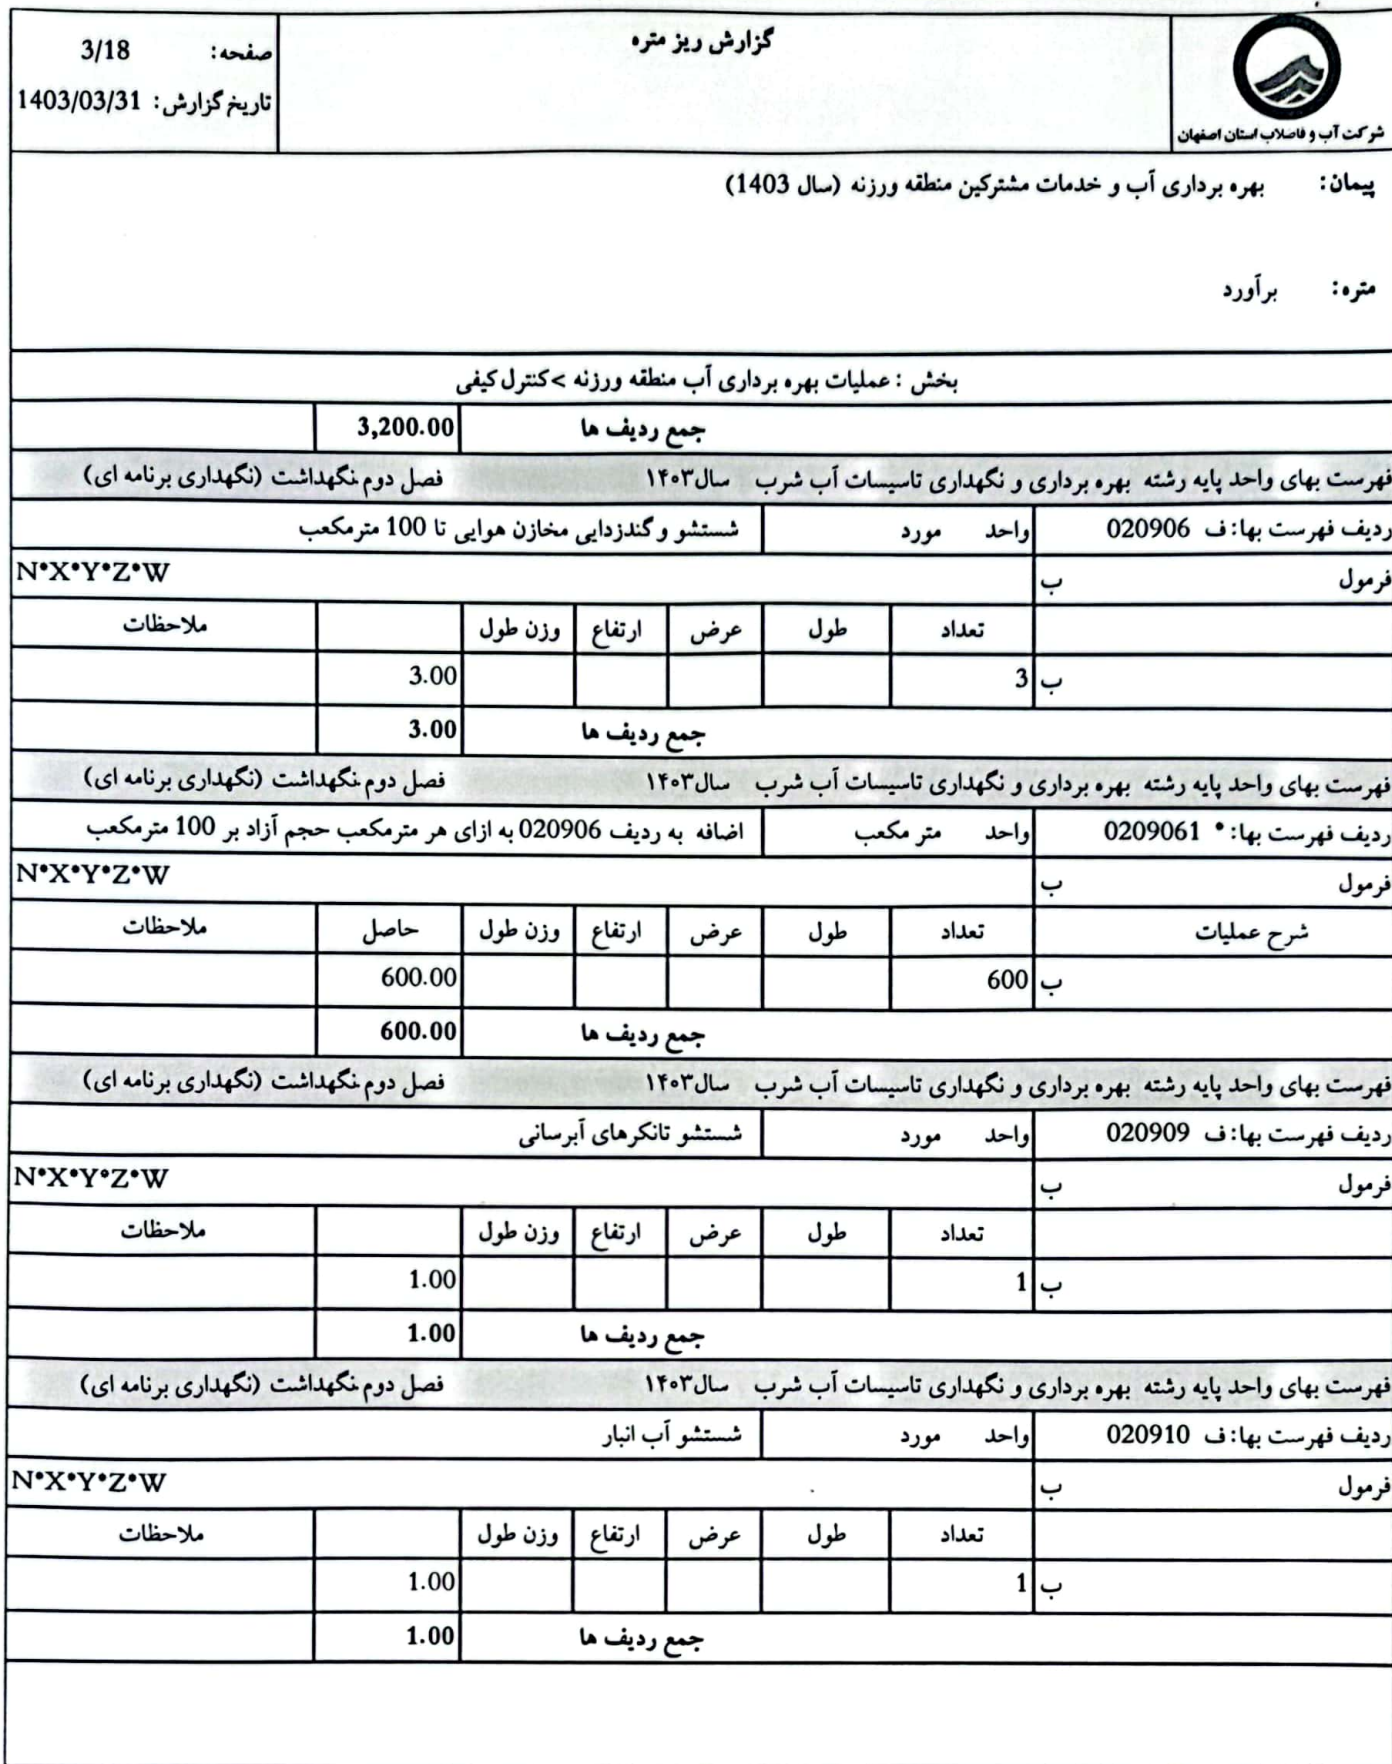 گزارش ریز متره
شرکت آب و فاضلاب استان اصفهان
صفحه: 3/18
تاریخ گزارش: 1403/03/31
پیمان: بهره برداری آب و خدمات مشترکین منطقه ورزنه (سال 1403)
متره: برآورد
بخش : عملیات بهره برداری آب منطقه ورزنه >کنترل کیفی
جمع ردیف ها 3,200.00
فهرست بهای واحد پایه رشته بهره برداری و نگهداری تاسیسات آب شرب سال۱۴۰۳ فصل دوم.نگهداشت (نگهداری برنامه ای)
ردیف فهرست بها: ف 020906 واحد مورد شستشو و گندزدایی مخازن هوایی تا 100 مترمکعب
فرمول ب N*X*Y*Z*W
تعداد طول عرض ارتفاع وزن طول ملاحظات
ب 3 3.00
جمع ردیف ها 3.00
فهرست بهای واحد پایه رشته بهره برداری و نگهداری تاسیسات آب شرب سال۱۴۰۳ فصل دوم.نگهداشت (نگهداری برنامه ای)
ردیف فهرست بها: * 0209061 واحد متر مکعب اضافه به ردیف 020906 به ازای هر مترمکعب حجم آزاد بر 100 مترمکعب
فرمول ب N*X*Y*Z*W
شرح عملیات تعداد طول عرض ارتفاع وزن طول حاصل ملاحظات
ب 600 600.00
جمع ردیف ها 600.00
فهرست بهای واحد پایه رشته بهره برداری و نگهداری تاسیسات آب شرب سال۱۴۰۳ فصل دوم.نگهداشت (نگهداری برنامه ای)
ردیف فهرست بها: ف 020909 واحد مورد شستشو تانکرهای آبرسانی
فرمول ب N*X*Y*Z*W
تعداد طول عرض ارتفاع وزن طول ملاحظات
ب 1 1.00
جمع ردیف ها 1.00
فهرست بهای واحد پایه رشته بهره برداری و نگهداری تاسیسات آب شرب سال۱۴۰۳ فصل دوم.نگهداشت (نگهداری برنامه ای)
ردیف فهرست بها: ف 020910 واحد مورد شستشو آب انبار
فرمول ب N*X*Y*Z*W
تعداد طول عرض ارتفاع وزن طول ملاحظات
ب 1 1.00
جمع ردیف ها 1.00